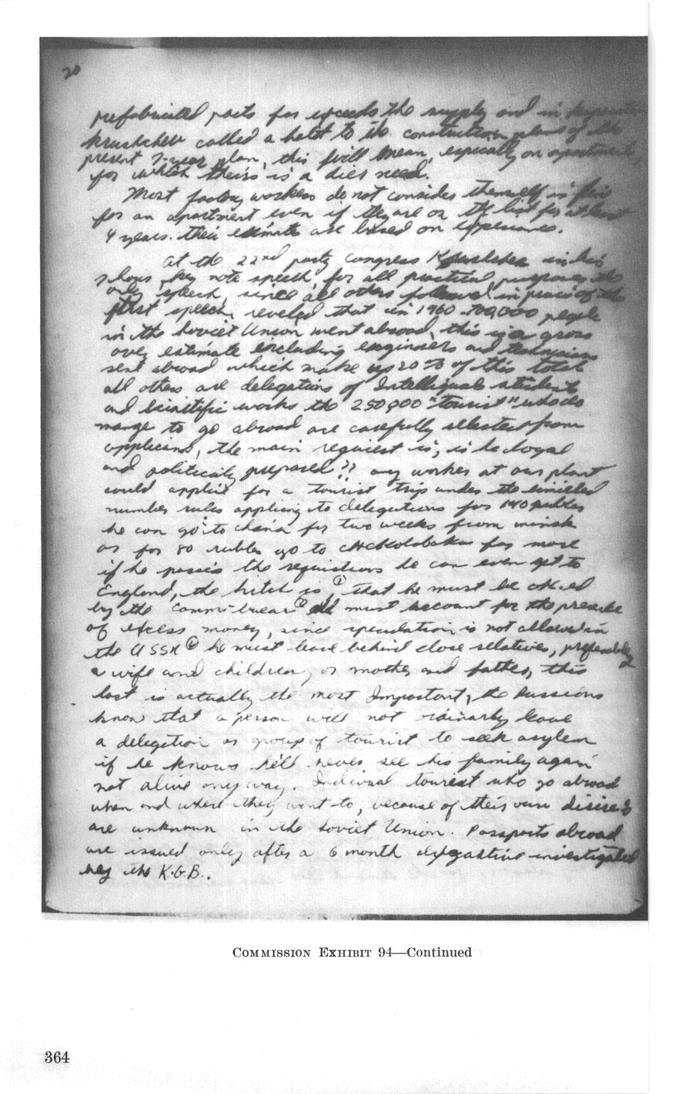 20
prefabricated parts far exceeds the supply and in
Krushchev called a halt to the construction plans of the
present 7-year plan, this will mean, especially on apartments
for which theirs is a dier need.
Most factory workers do not consider themself in
for an apartment even if they are on the list for at least
4 years. their estimate are based on experiance.
At the 22nd party congress in his
7 hour key note speech, for all practical purposes, the
only speech, since all others followed in praise of the
first speech, reveled that in 1960 700,000 people
in the Soviet Union went abroad, this is a gross
over estimate including engineers and technicions
sent abroad which make up 20% of this total
all others are delegations of students
and works the 250,000 "tourist" who do
mange to go abroad are carefully selected from
applicans, the main requiest is, is he loyal
and politically preposed?? any worker at our plant
could applied for a tourist trip under the limited
number rules applying to delegations for 140 rubles
he can go to china for two weeks from minsk
or for 80 rubles go to for more
if he passes the he can even get to
England, the hitch is ① that he must be
by the ② must account for the
of excess money, since speculation is not allowed in
the USSR ③ he must leave behind close relatives, preferably
a wife and children, or mother and father, this
last is actually the most Important, the Russions
know that a person will not leave
a delegation or group of tourist to seek asylem
if he knows he'll never see his family again
not alive anyway. tourest who go abroad
when and where they want to, because of their own
are unknown in the Soviet Union. Passports abroad
are issued only after a 6 month
by the K.G.B..
COMMISSION EXHIBIT 94—Continued
364